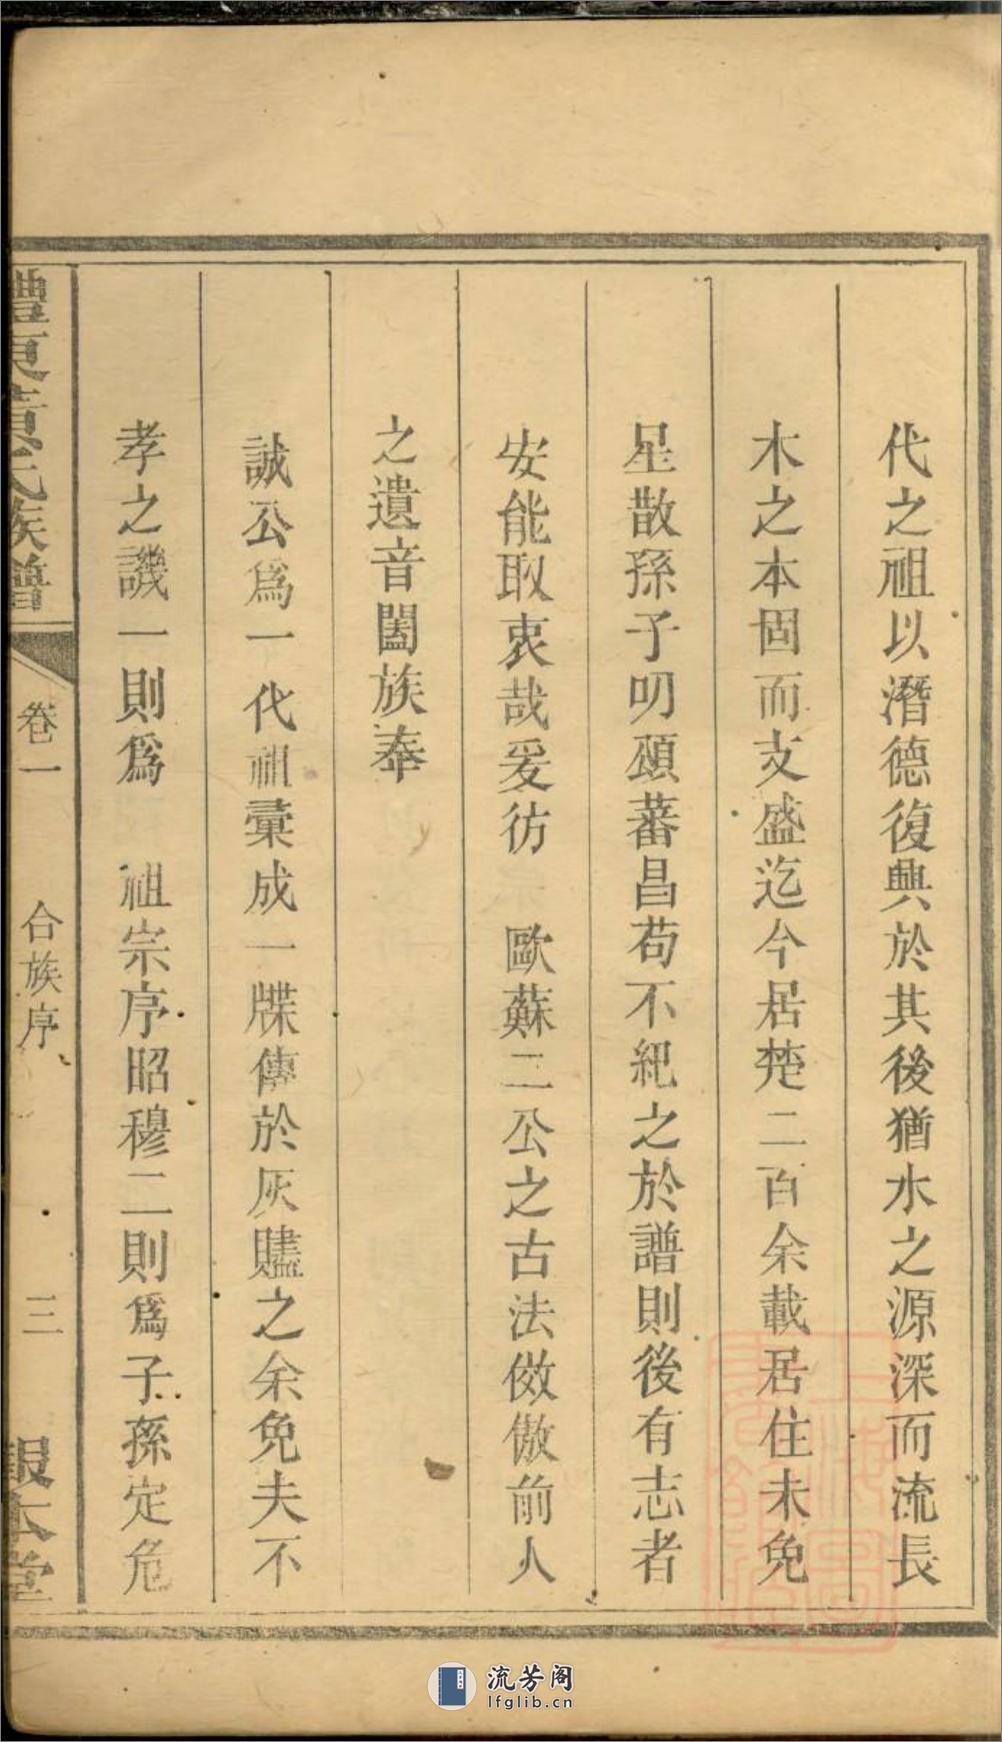 代之祖以潛德復興於其後猶水之源深而流長
木之本固而支盛迄今居楚二百余載居住未免
星散孫子叨頤蕃昌苟不紀之於譜則後有志者
安能取衷哉爰彷 歐蘇二公之古法倣傲前人
之遺音闔族奉
誠公爲一代祖彙成一牒傳於灰贐之余免夫不
孝之譏一則爲 祖宗序昭穆二則爲子孫定危
澧東黃氏族譜
卷一
合族序
三
報本堂
流芳阁
lfglib.cn